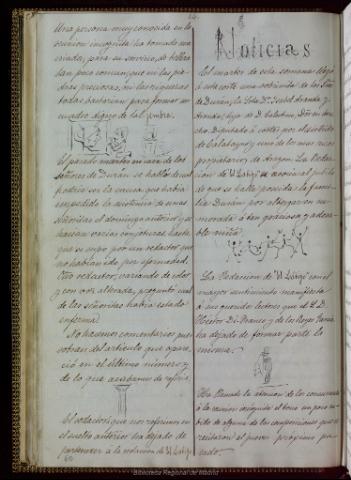 Una persona muy conocida en la
reunion incognita ha tomado una
criada, para su servicio, de belleza
tan poco comun, que ni las pie-
dras preciosas, ni las riquezas
todas bastarian para formar un
marco digno de tal
El pasado martes en casa de los
señores de Durán se habló de
podria ser la causa que habia
impedido la asistencia de unas
señoritas el domingo anterior, y se
hacian varias conjeturas, hasta
que se supo por un redactor que
no habian ido por enfermedad.
Otro redactor, variando de color
y con voz alterada, preguntó cual
de las señoritas habia estado
enferma.
No hacemos comentarios pues
sobran del articulo que apare-
ció en el último número y
de lo que acabamos de referir.
El redactor que nos referimos en
el suelto anterior ha dejado de
pertenecer a la redacion de El Látigo
Noticias
El martes de esta semana llegó
á esta corte una sobrina de los Sres
de Durán, la Srta Dª Isabel Aranda y
Aranda, hija de D. Celestino,
Diputado á cortes por el distrito
de Calatayud y uno de los mas ricos
propietarios de Aragon. La Redac-
cion de El Látigo se asocia al jubilo
de que se halla poseida la fami-
lia Durán por albergar en su
morada á tan graciosa y adora-
ble niña.
La Redacion de El Látigo con el
mayor sentimiento manifiesta
á sus queridos lectores que el S. D.
Hector Di-Franco y de los Reyes
ha dejado de formar parte de la
misma.
Ha llamado la atencion de los concurrentes
á la reunion incognita el tono un poco su-
bido de alguna de las composiciones que se
recitaron el jueves próximo pa-
sado.
Biblioteca Regional de Madrid